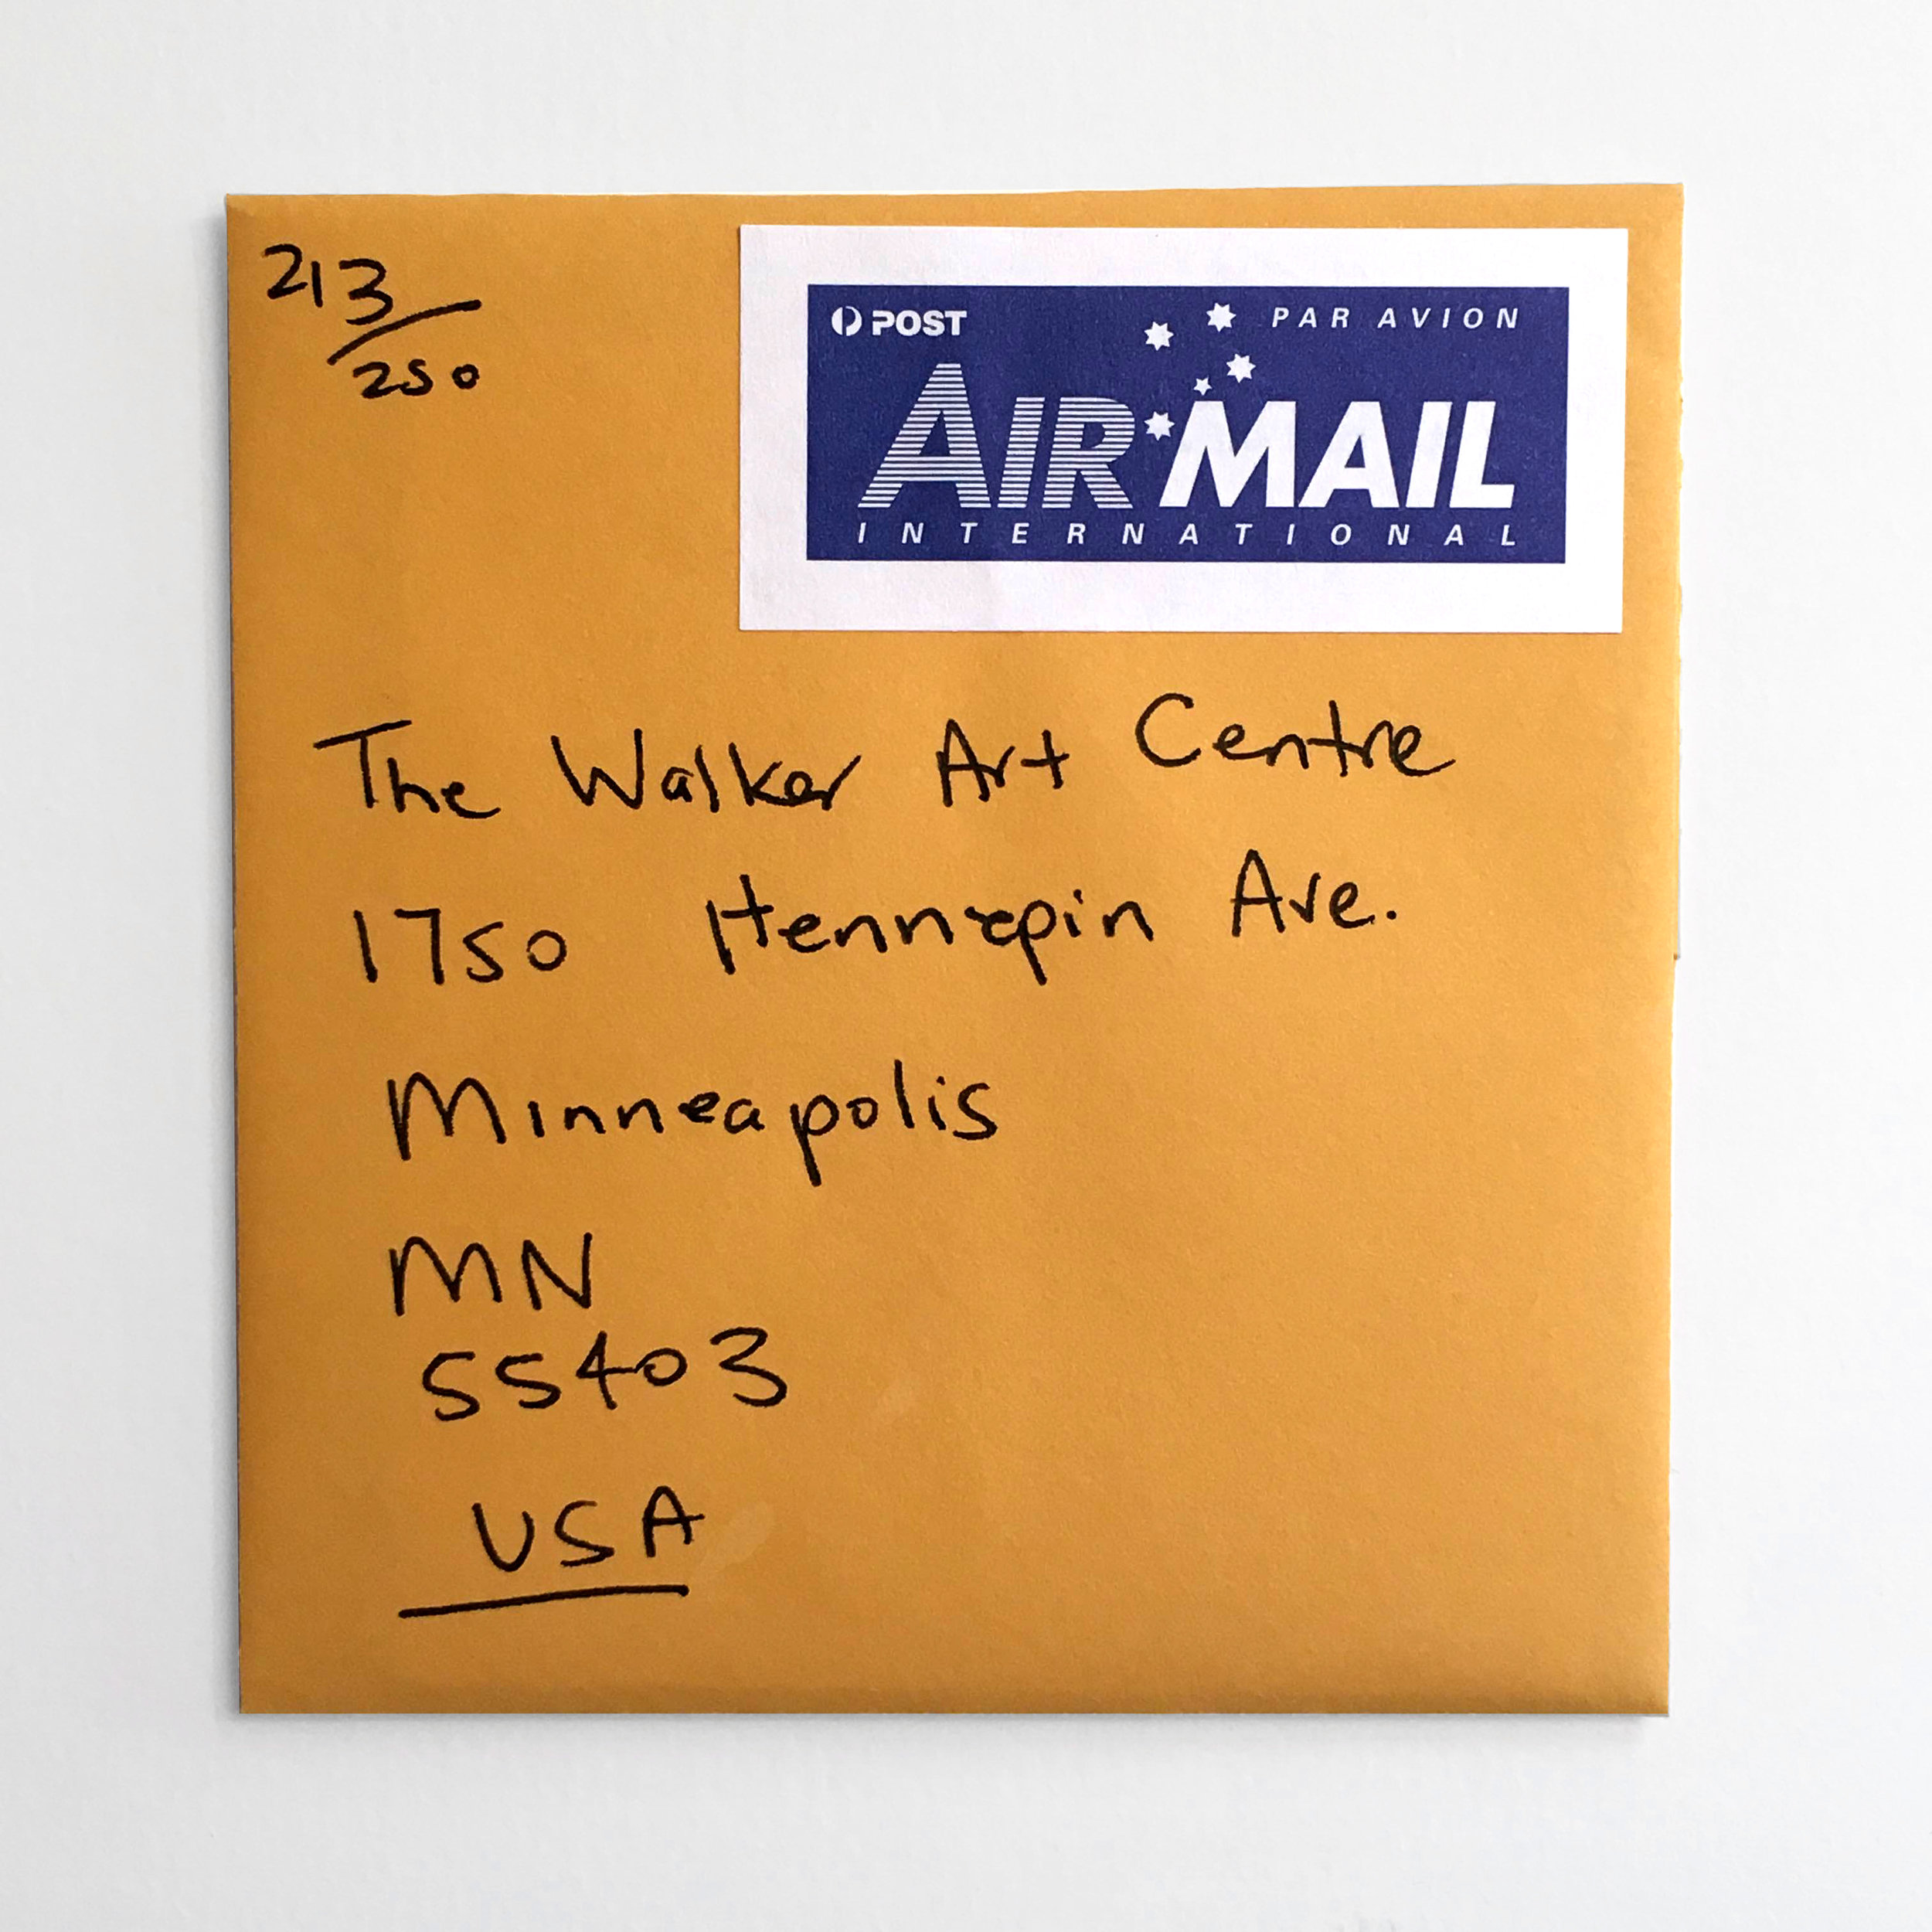 213/250
POST PAR AVION
AIR MAIL
INTERNATIONAL
The Walker Art Centre
1750 Hennepin Ave.
Minneapolis
MN
55403
USA